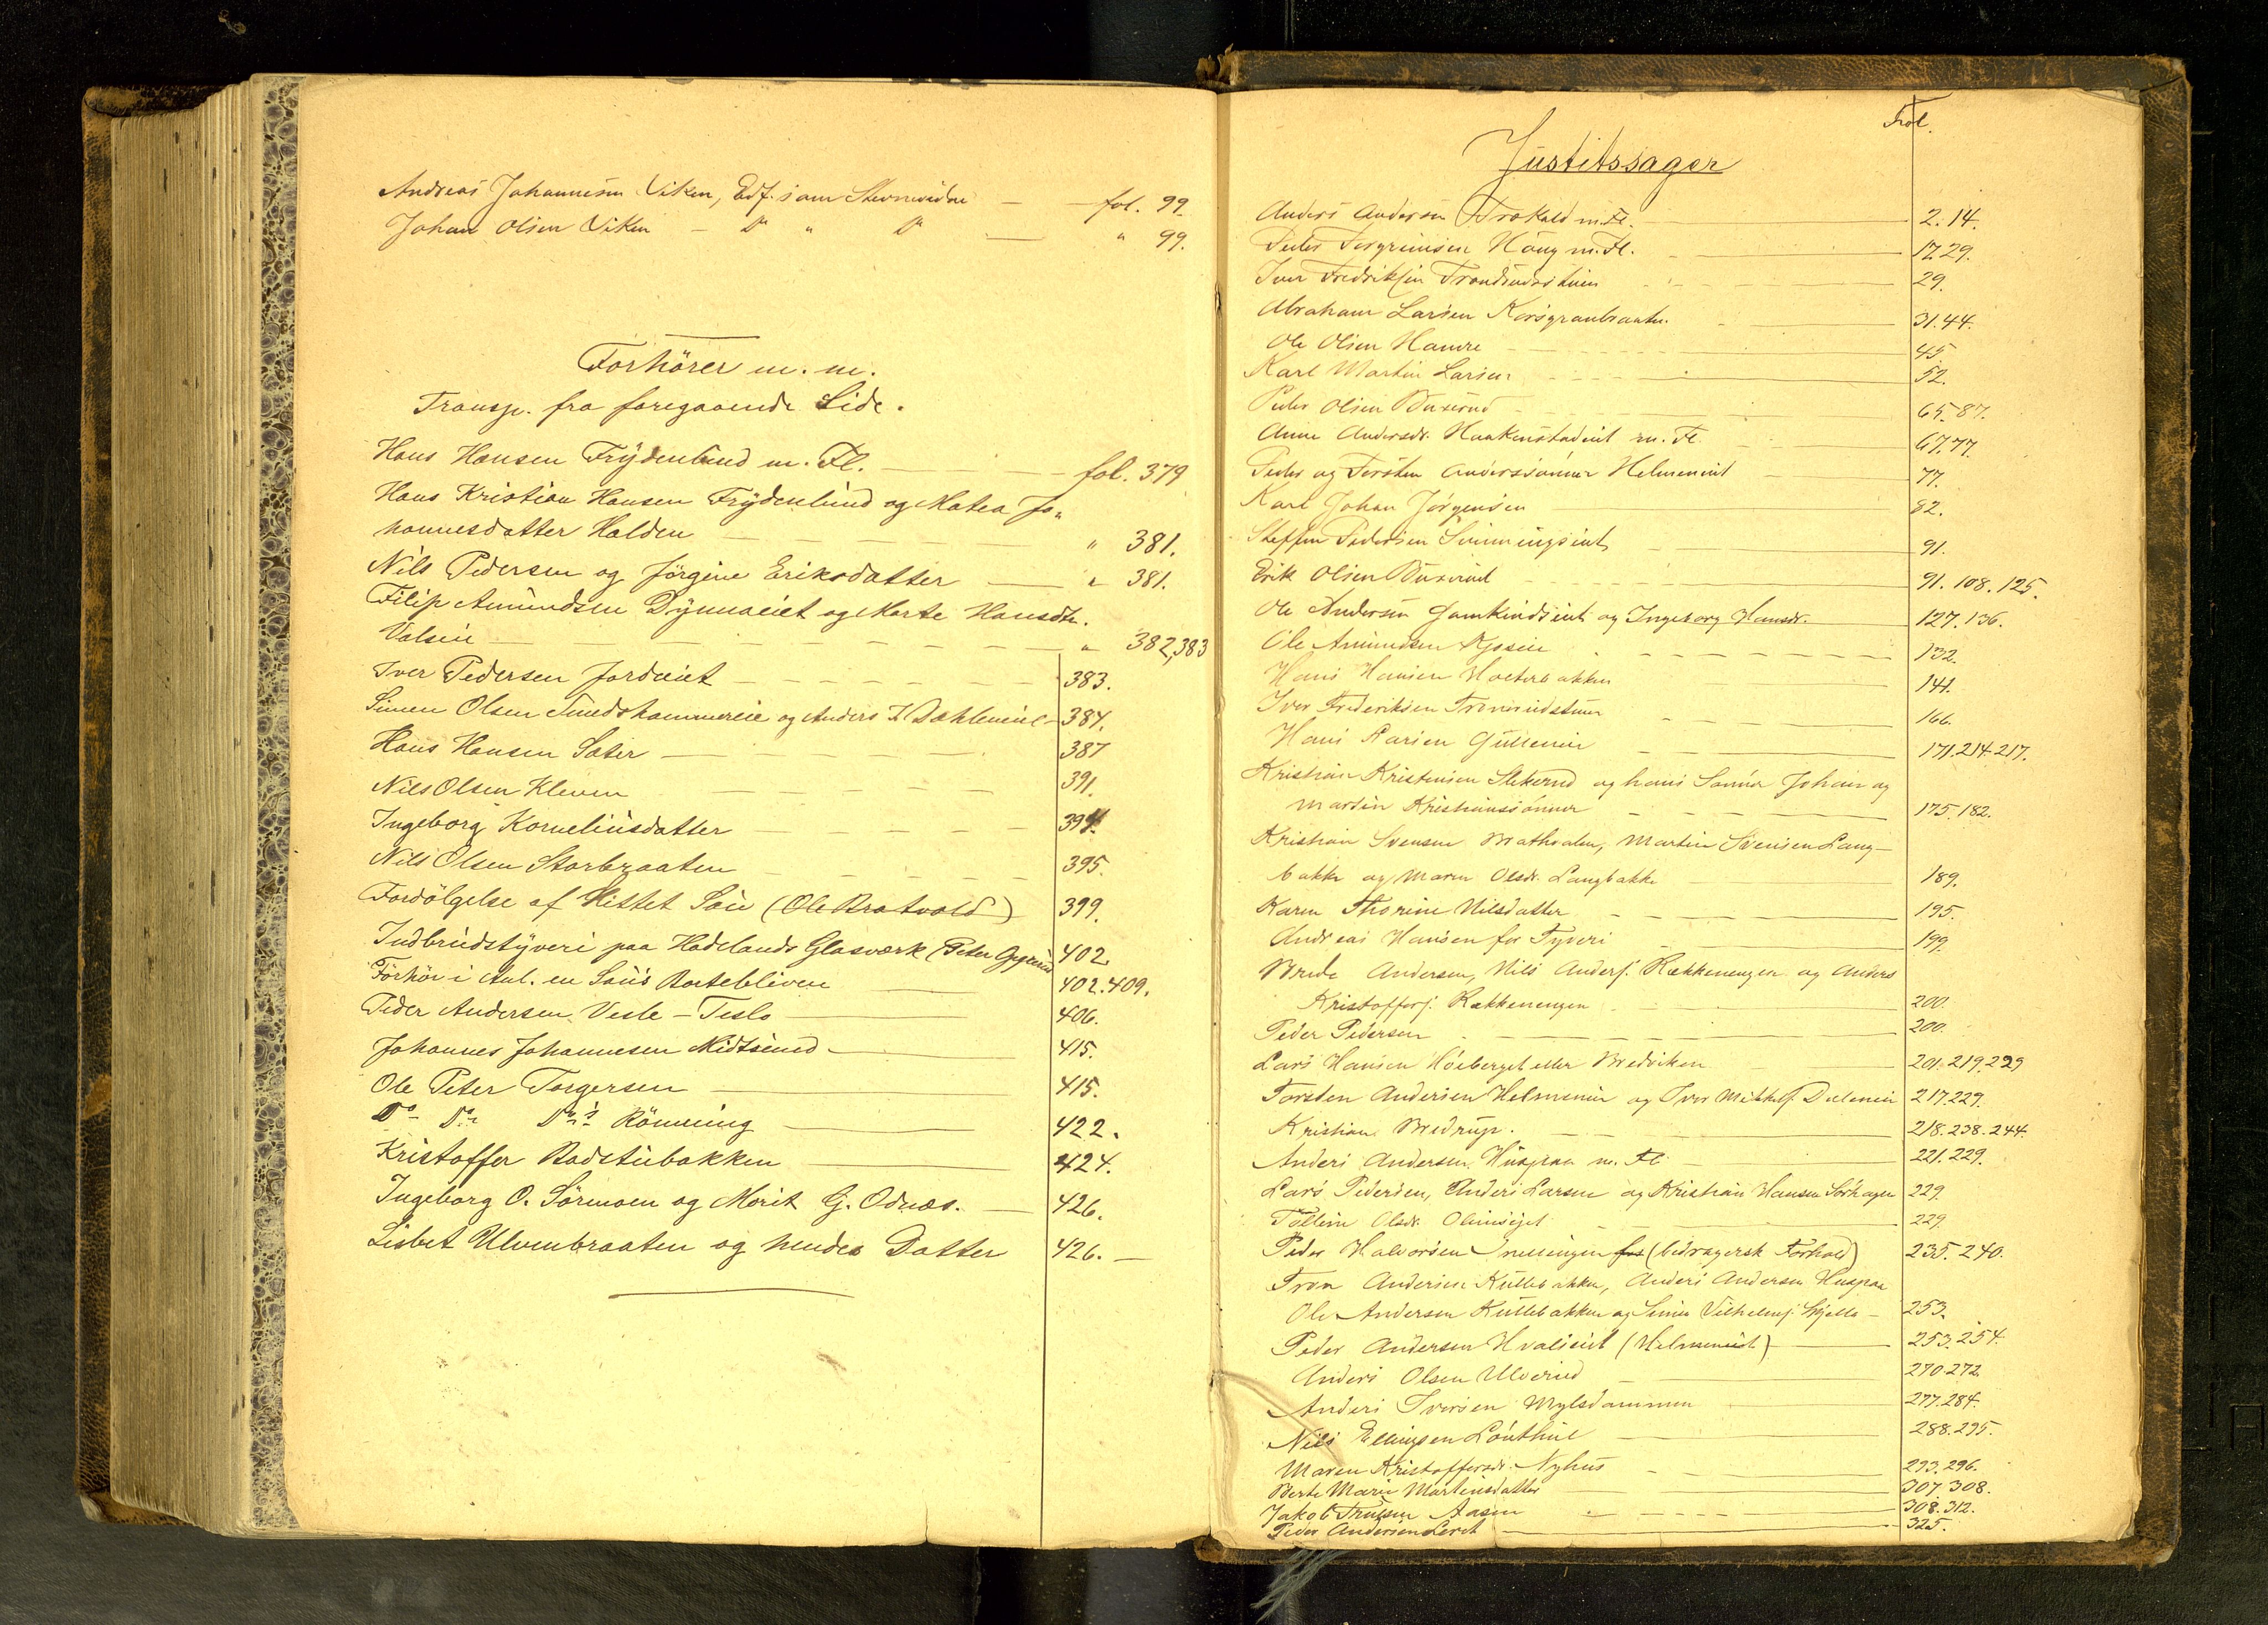 Andreas Johannesen Viken, Edf. som Stevnevidne — fol. 99.
Johan Olsen Viken — Do " Do — " 99.
Forhörer m. m.
Transp. fra foregaaende Side.
Hans Hansen Frydenlund m. Fl. — fol. 379
Hans Kristian Hansen Frydenlund og Matea Jo„
hannesdatter Halden — " 381.
Nils Pedersen og Jörgine Eriksdatter — " 381.
Filip Amundsen Dynnaeiet og Marte Hansdtr.
Valseie — " 382,383
Iver Pedersen Jordeiet — 383.
Simen Olsen Sundshammereie og Anders K. Dæhleneiet 384.
Hans Hansen Sater — 387
Nils Olsen Kleven — 391.
Ingeborg Korneliusdatter — 394.
Nils Olsen Storbraaten — 395.
Fordölgelse af Hittet Saue (Ole Bratvold) 399.
Indbrudstyveri paa Hadelands Glasværk (Peter 402.
Forhör i Anl. en Sau's Bortebliven — 402.409.
Peder Andersen Vesle-Teslo — 406.
Johannes Johannesen Midtsund — 415.
Ole Peter Torgersen — 415.
Do Do Do's Rönning — 422.
Kristoffer Badstubakken — 424.
Ingeborg O. Sörumoen og Marit G. Odnæs. — 426.
Lisbet Ulvenbraaten og hendes Datter 426. —
Fol.
Justitssager
Anders Andersen m. Fl. — 2.14.
Peder Torgrimsen Haug m. Fl. — 17.29.
Iver Fredriksen Trondrudstuen — 29.
Abraham Larsen Korsgranbraaten. — 31.44.
Ole Olsen Hamre — 45
Karl Martin Larsen — 52.
Peder Olsen Buxerud — 65.87.
Anne Andersdr. Haakenstadeiet m. Fl. — 67.77.
Peder og Torsten Anderssönner Helmeneiet — 77.
Karl Johan Jörgensen — 82.
Steffen Pedersen — 91.
Erik Olsen Buxerud — 91.108.125.
Ole Andersen Gamkindseiet og Ingeborg Hansdr. 127.136.
Ole Amundsen — 132.
Hans Hansen Holterbakken — 141.
Iver Frederiksen Tronrudstuen — 166.
Hans Larsen Gulleneie — 171.214.217.
Kristian Kristensen Stekerud og hans Sönner Johan og
Martin Kristianssönner — 175.182.
Kristian Svensen Brathvalen, Martin Svensen Lang-
bakke og Maren Olsdr. Langbakke — 189.
Karen Thorine Nilsdatter — 195.
Andreas Hansen for Tyveri — 199.
Brede Andersen, Nils Andersj. Rækkenengen og Anders
Kristoffersj. Rækkenengen — 200.
Peder Pedersen — 200.
Lars Hansen Höiberget eller Bredviken — 201.219.229
Torsten Andersen Helmeneie og Iver Mikkelsj. Duleneie 217.229.
Kristian Bredrup. — 218.238.244.
Anders Andersen Huspaa m. Fl. — 221.229.
Lars Pedersen, Anders Larsen og Kristian Hansen Sörhagen 229.
Olsdr. — 229.
Peder Halvorsen Snellingen for (bedragersk Forhold) 235.240.
Tron Andersen Kullebakken, Anders Andersen Huspaa
Ole Andersen Kullebakken og Simen Vilhelmsj. — 253.
Peder Andersen Hvalseiet (Helmeneiet) — 253.254.
Anders Olsen Ulverud — 270.272.
Anders Iversen Mylsdammen — 277.284.
Nils Ellingsen — 288.295.
Maren Kristoffersdr. Nyhus — 293.296.
Berte Marie Martensdatter — 307.308.
Jakob Trulsen Aasen — 308.312.
Peder Andersen — 325.